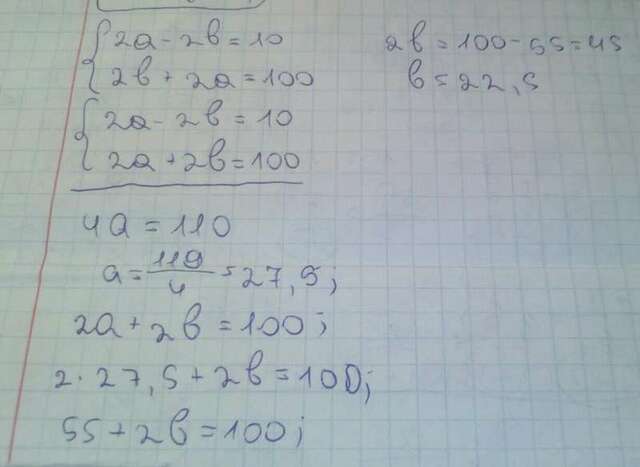 2a - 2b = 10
2b + 2a = 100
2a - 2b = 10
2a + 2b = 100
4a = 110
a = 110/4 = 27,5;
2a + 2b = 100;
2 · 27,5 + 2b = 100;
55 + 2b = 100;
2b = 100 - 55 = 45
b = 22,5